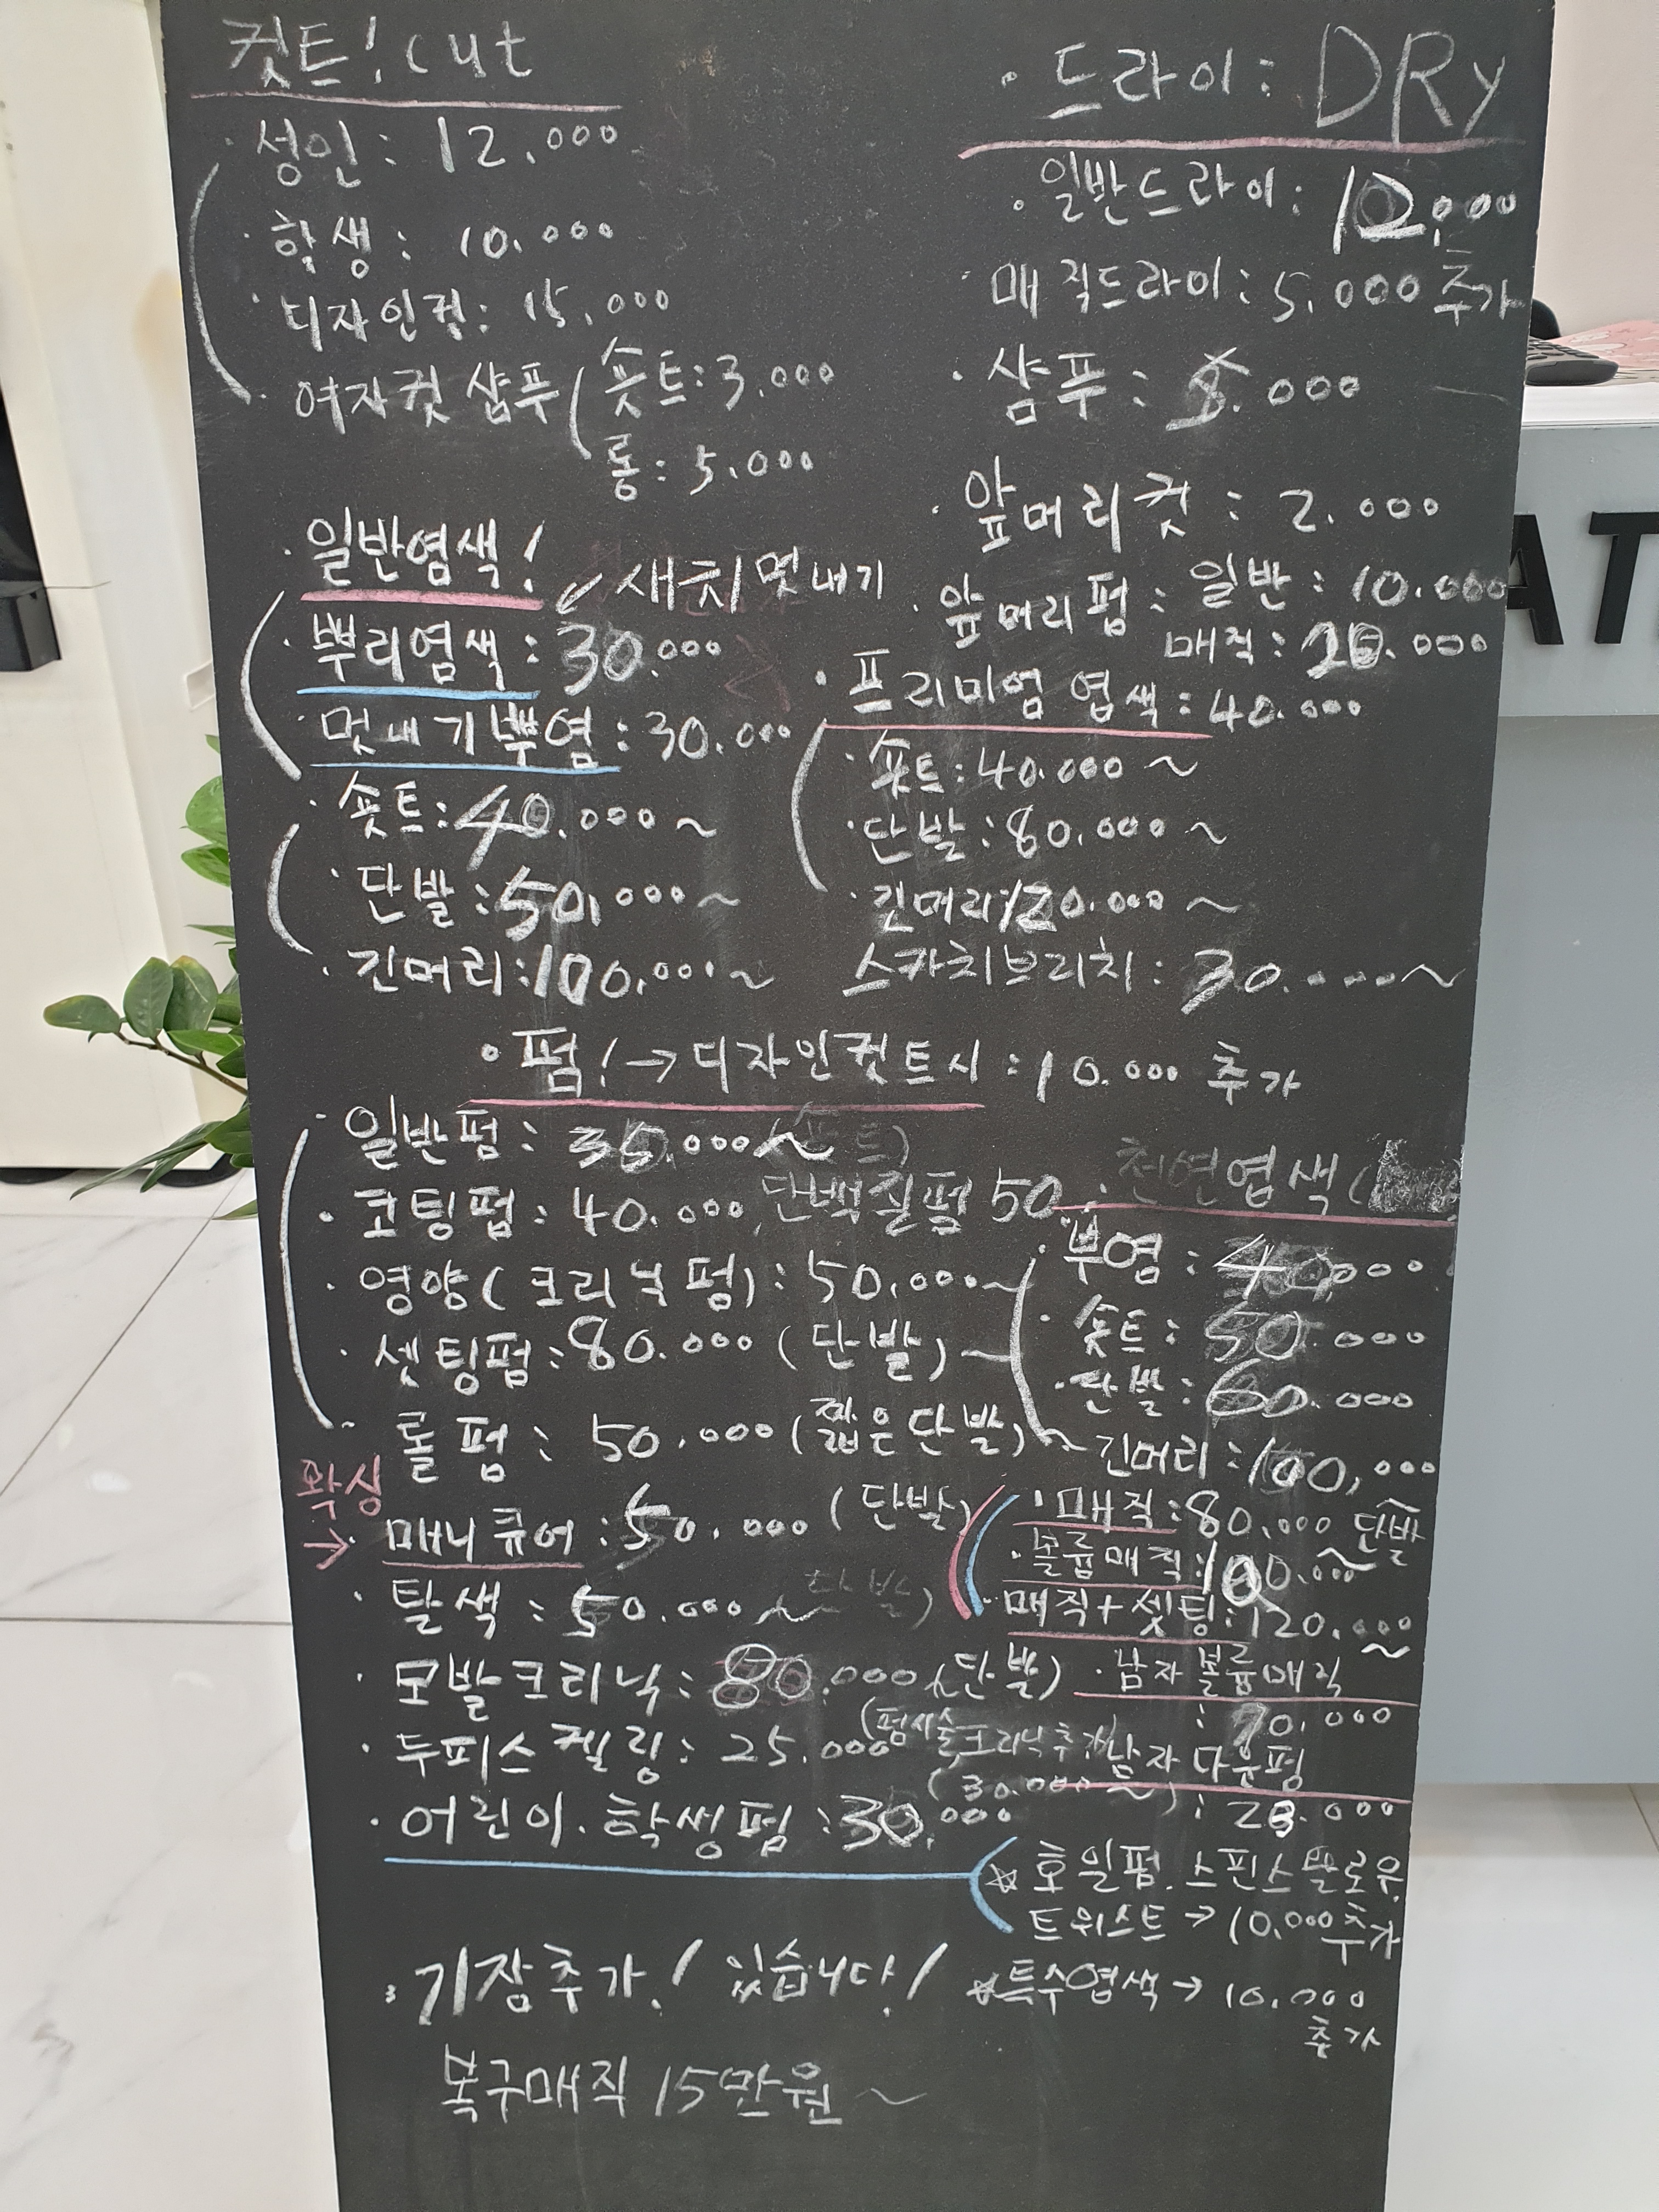 컷트! cut
· 성인 : 12.000
· 학생 : 10.000
· 디자인컷 : 15.000
· 여자컷 샴푸 ( 숏트 : 3.000
롱 : 5.000
· 드라이 : DRy
· 일반드라이 : 12,000
· 매직드라이 : 5.000 추가
· 샴푸 : .000
· 앞머리컷 : 2.000
· 앞머리펌 : 일반 : 10.000
매직 : .000
· 일반염색!
✓ 새치 멋내기
· 뿌리염색 : 30.000
· 멋내기뿌염 : 30.000
· 숏트 : 40.000 ~
· 단발 : 50,000 ~
· 긴머리 : 100,000 ~
· 프리미엄 엽색 : 40.000
· 숏트 : 40.000 ~
· 단발 : 80.000 ~
· 긴머리 : 120.000 ~
스카치브리치 : 30.000 ~
· 펌! → 디자인컷트시 : 10.000 추가
· 일반펌 : 35.000 ~
· 코팅펌 : 40.000, 단백질펌 50
· 영양 ( 크리닉 펌) : 50,000 ~
· 셋팅펌 : 80.000 ( 단발 ) ~
· 롤 펌 : 50.000 ( 짧은단발 ) ~
왁싱
→ · 매니큐어 : 50.000 ( 단발 )
· 탈색 : 50.000 ~ 단발 )
· 모발크리닉 : 80.000 (단발 )
· 두피스켈링 : 25.000
(펌시술 크리닉추가)
( 30.000 ~ )
· 어린이. 학생펌 : 30,000
· 천연엽색 (
· 뿌염 : 40,000
· 숏트 : 50.000
· 단발 : 60.000
~ 긴머리 : 100,000 ~
· 매직 : 80.000 단발
· 볼륨매직 : 100.000 ~
· 매직 + 셋팅 : 120.000 ~
· 남자 볼륨매직
: 70.000
남자 다운펌
: .000
☆ 호일펌. 스핀스왈로우.
트위스트 → 10.000 추가
☆ 특수엽색 → 10.000
추가
· 기장추가! 있습니다!
복구매직 15만원 ~
AT